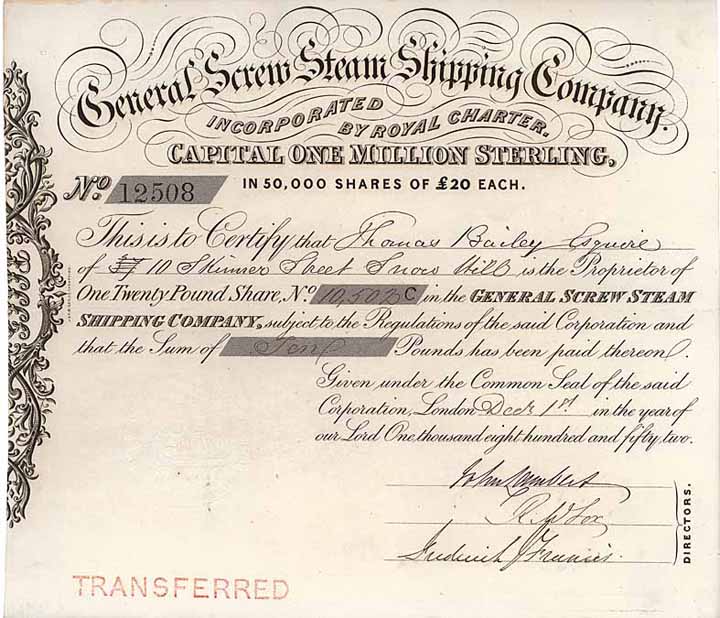 General Screw Steam Shipping Company.
INCORPORATED
BY ROYAL CHARTER.
CAPITAL ONE MILLION STERLING,
IN 50,000 SHARES OF £20 EACH.
No. 12508
This is to Certify that Thomas Bailey Esquire
of 10 Skinner Street Snow Hill is the Proprietor of
One Twenty Pound Share, No. 10,502 C in the GENERAL SCREW STEAM
SHIPPING COMPANY, subject to the Regulations of the said Corporation and
that the Sum of Ten Pounds has been paid thereon.
Given under the Common Seal of the said
Corporation, London Decr 1st in the year of
our Lord One thousand eight hundred and fifty two.
John Lambert
R W Fox
Frederick J Francis.
DIRECTORS.
TRANSFERRED